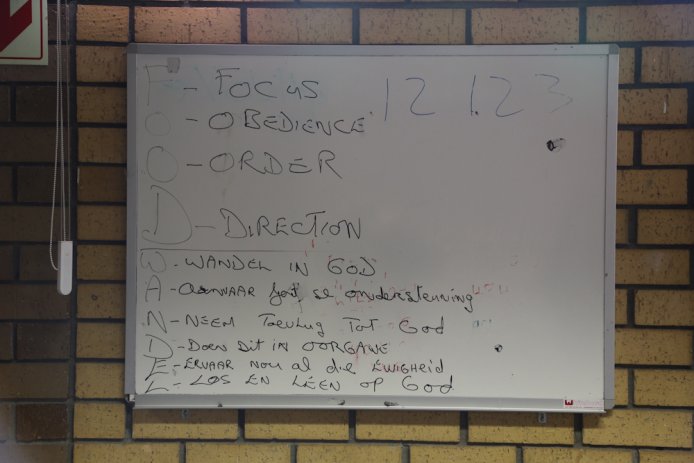 F - FOCUS 12 1.23
O - OBEDIENCE
O - ORDER
D - DIRECTION
W - WANDEL IN GOD
A - God se ondersteuning
N - NEEM Toevlug Tot God
D - Doen Dit IN OORGAWE
E - ERVAAR nou al die EWIGHEID
L - LOS EN LEEN OP GOD